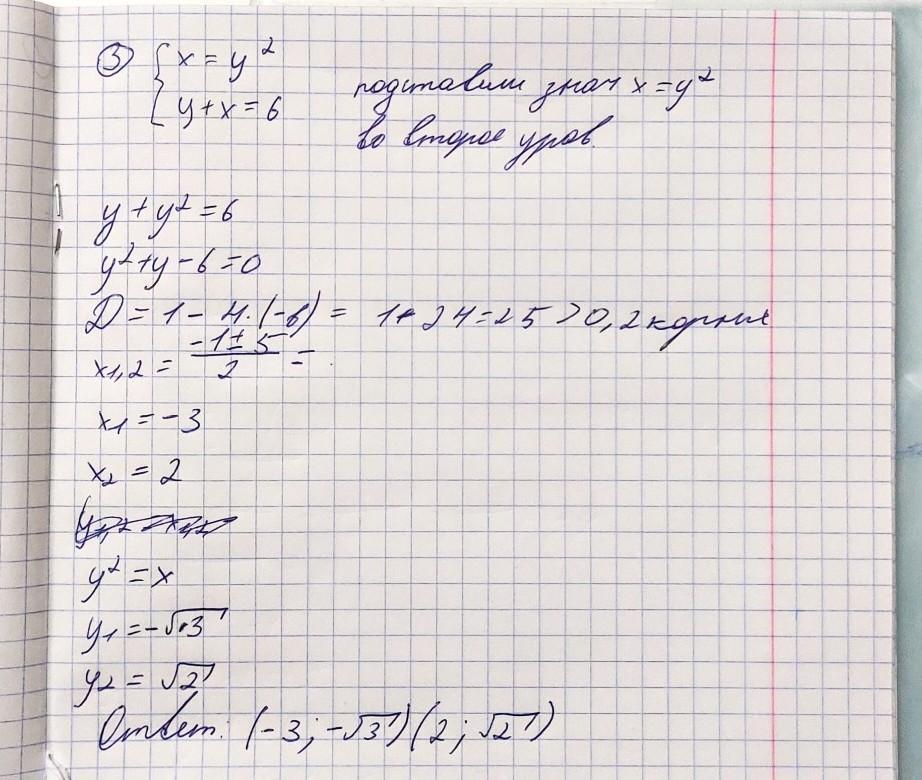 ③ { x = y²
y + x = 6
подставим знач x = y²
во второе урав.
y + y² = 6
y² + y - 6 = 0
D = 1 - 4·(-6) = 1 + 24 = 25 > 0, 2 корня
x1,2 = (-1 ± 5)/2 =
x1 = -3
x2 = 2
y² = x
y1 = -√3
y2 = √2
Ответ: (-3; -√3) (2; √2)